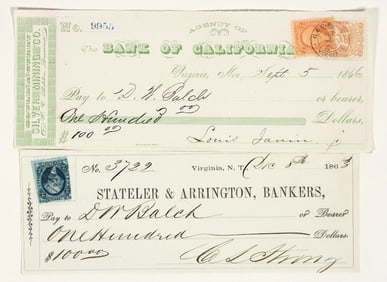 No. 9955
AGENCY OF
The BANK OF CALIFORNIA
Virginia, Nev. Sept 5 1866
Pay to D. W. Balch or bearer,
One Hundred 00 Dollars,
$100 00 Louis Janin jr
SILVER MINING CO.
No. 3722 Virginia, N. T. Dec 8th 1863
STATELER & ARRINGTON, BANKERS,
Pay to DW Balch or Bearer
One Hundred Dollars.
$100 00 C L Strong